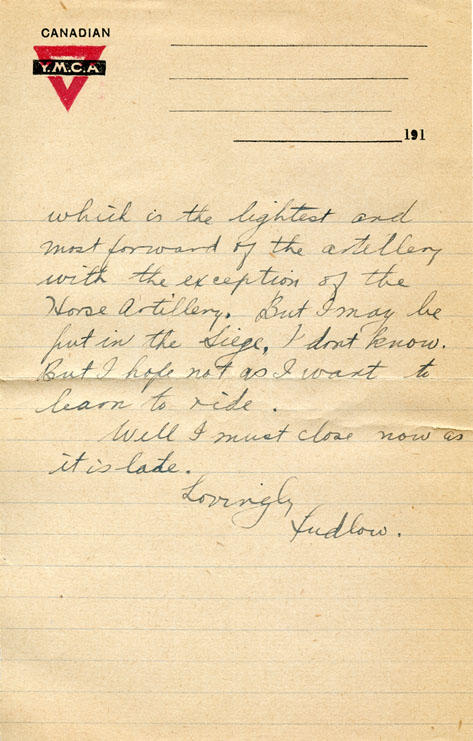 CANADIAN
Y.M.C.A
191
which is the lightest and
most forward of the artillery
with the exception of the
Horse Artillery. But I may be
put in the Siege, I dont know.
But I hope not as I want to
learn to ride.
Well I must close now as
it is late.
Lovingly
Ludlow.